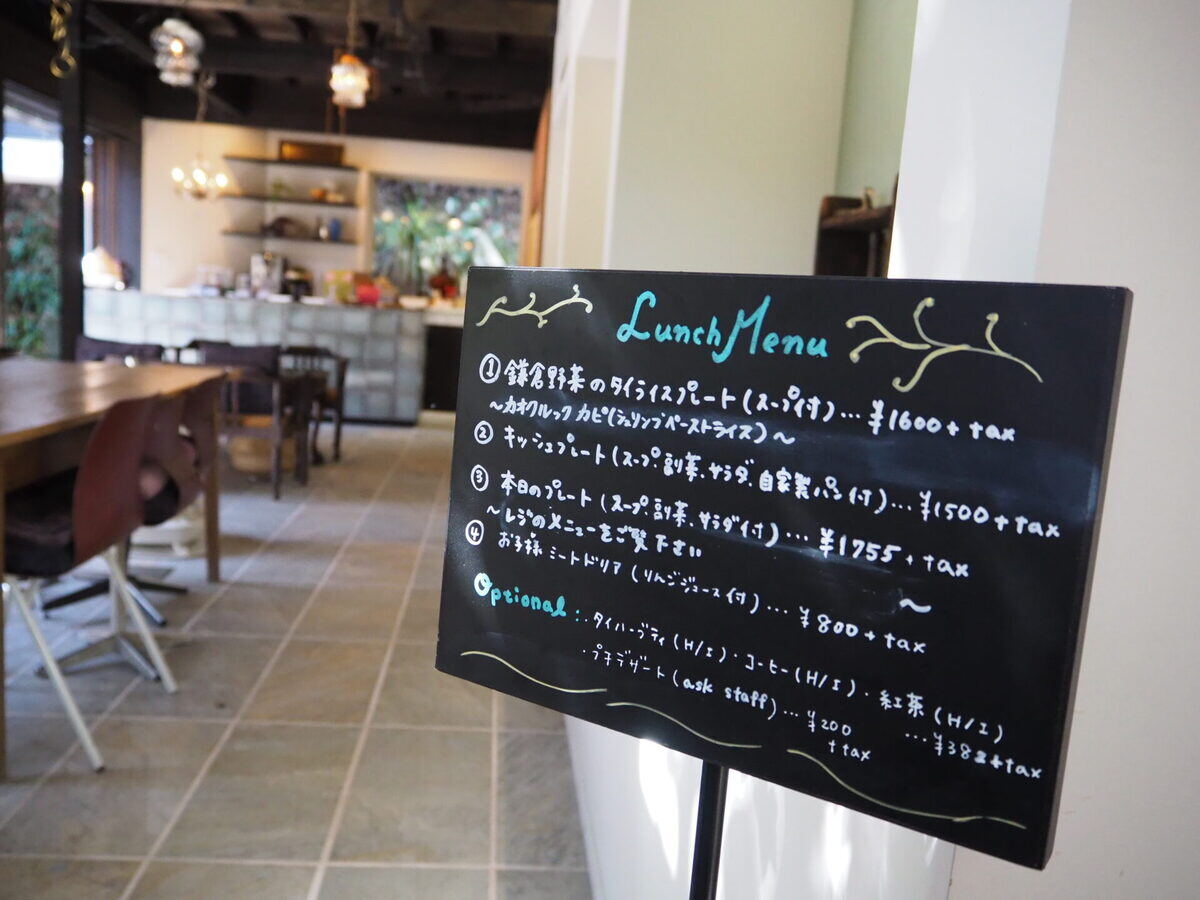 Lunch Menu
① 鎌倉野菜のタイライスプレート(スープ付)… ¥1600+tax
~カオクルック カピ(シュリンプペーストライス)~
② キッシュプレート(スープ.副菜.サラダ.自家製パン付)… ¥1500+tax
③ 本日のプレート(スープ.副菜.サラダ付)… ¥1755+tax
~レジのメニューをご覧下さい~
④ お子様ミートドリア(りんごジュース付)… ¥800+tax
Optional:・タイハーブティ(H/I)・コーヒー(H/I)・紅茶(H/I)
…¥382+tax
・プチデザート(ask staff)…¥200
+tax